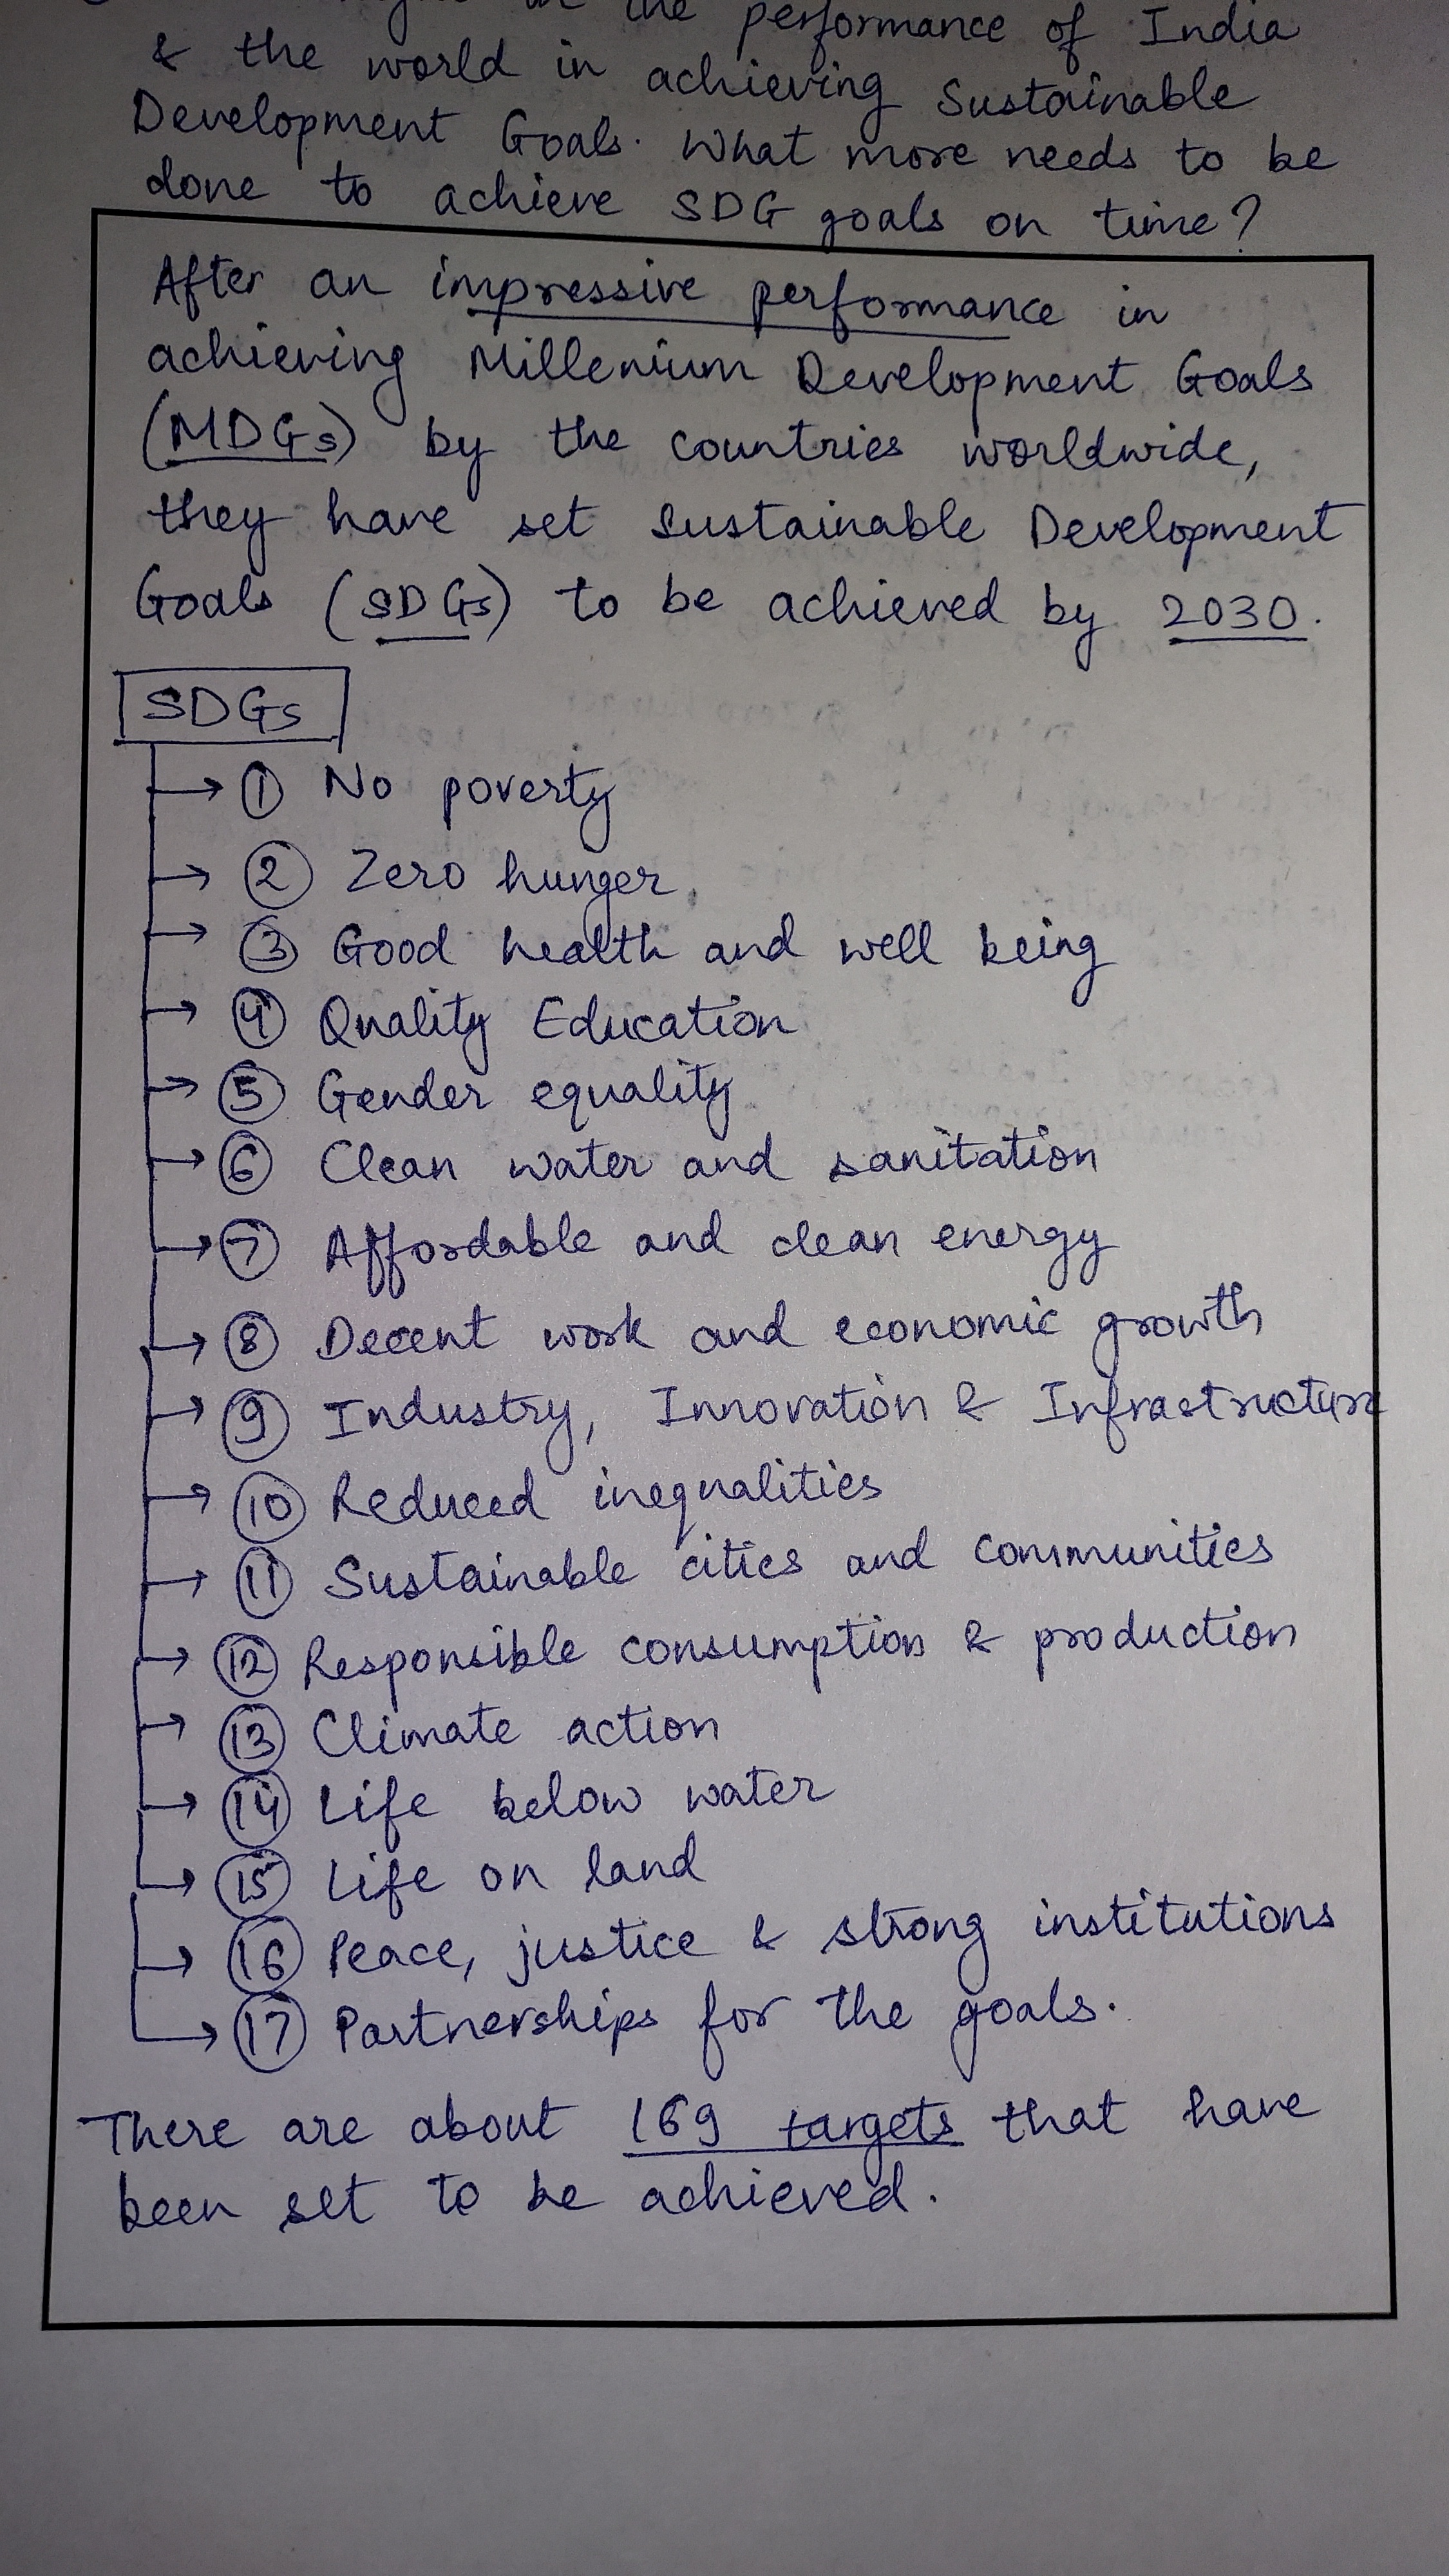 the performance of India
& the world in achieving Sustainable
Development Goals. What more needs to be
done to achieve SDG goals on time?
After an impressive performance in
achieving Millenium Development Goals
(MDGs) by the countries worldwide,
they have set Sustainable Development
Goals (SDGs) to be achieved by 2030.
SDGs
→ 1 No poverty
→ 2 Zero hunger
→ 3 Good health and well being
→ 4 Quality Education
→ 5 Gender equality
→ 6 Clean water and sanitation
→ 7 Affordable and clean energy
→ 8 Decent work and economic growth
→ 9 Industry, Innovation & Infrastructure
→ 10 Reduced inequalities
→ 11 Sustainable cities and communities
→ 12 Responsible consumption & production
→ 13 Climate action
→ 14 Life below water
→ 15 Life on land
→ 16 Peace, justice & strong institutions
→ 17 Partnerships for the goals.
There are about 169 targets that have
been set to be achieved.